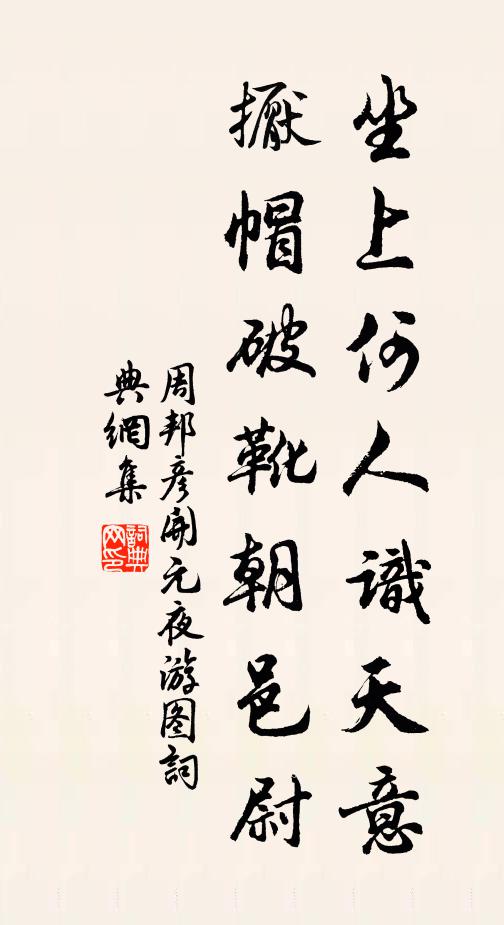 坐上何人識天意
擫帽破靴朝邑尉
周邦彦開元夜游图詞
典網集
詞典
网印